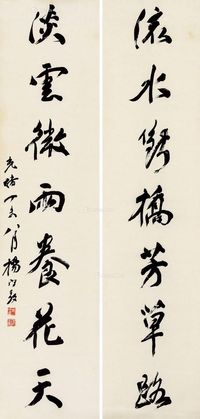 流水斷橋芳草路
淡雲微雨養花天
光緒丁亥八月楊守敬